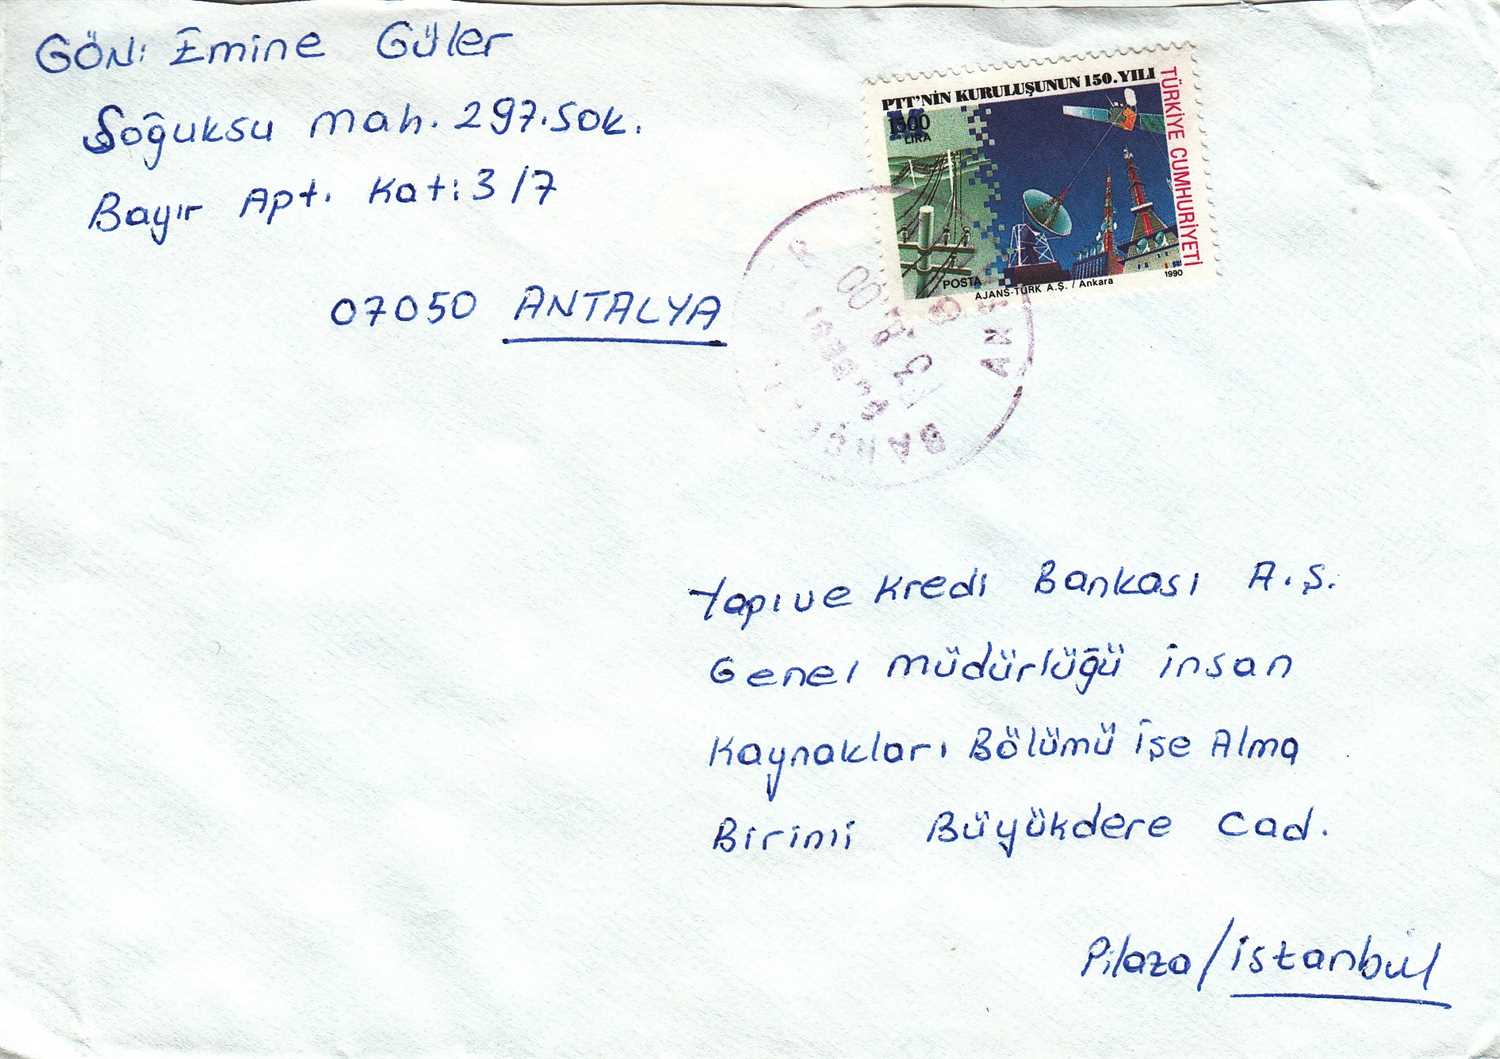 GÖN: Emine Güler
Soğuksu mah. 297. sok.
Bayır Apt. Kat: 3/7
07050 ANTALYA
PTT'NİN KURULUŞUNUN 150. YILI
TÜRKİYE CUMHURİYETİ
1500
LİRA
POSTA
1990
AJANS-TÜRK A.Ş. / Ankara
Yapı ve Kredi Bankası A.Ş.
Genel Müdürlüğü insan
Kaynakları Bölümü işe Alma
Birimi Büyükdere Cad.
Pilaza/istanbul